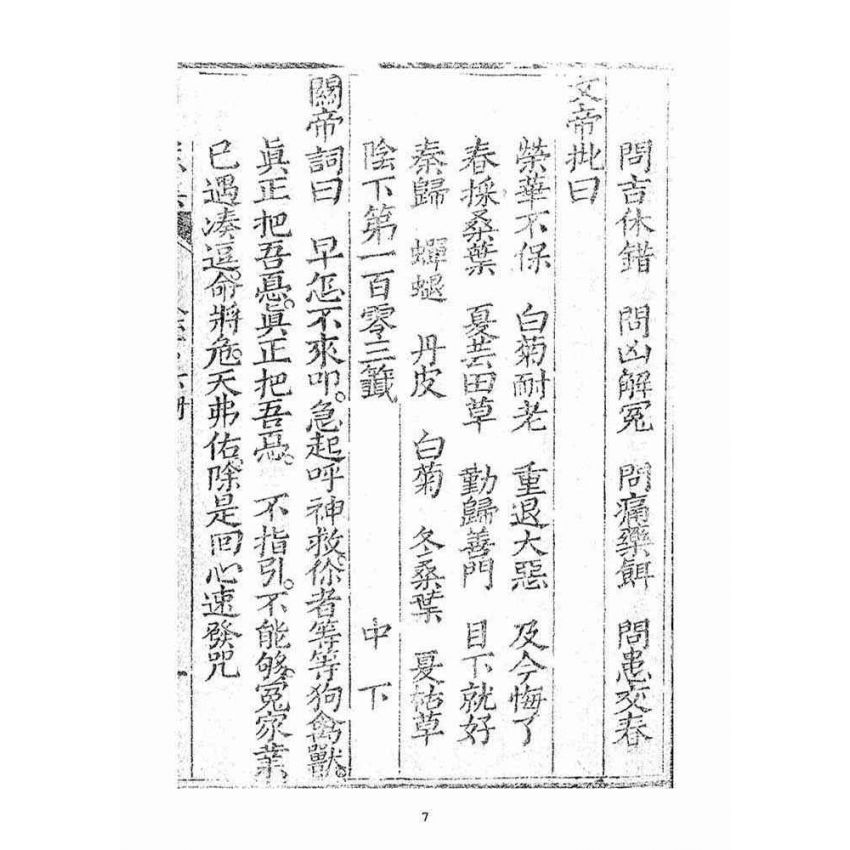 問吉休錯　問凶解冤　問痛藥餌　問患交春
文帝批曰
榮華不保　白菊耐老　重退大惡　及今悔了
春採桑葉　夏芸田草　勤歸善門　目下就好
秦歸　蟬蛻　丹皮　白菊　冬桑葉　夏枯草
陰下第一百零三籤　中下
關帝詞曰　早怎不來叩。急起呼神救。你者等等狗禽獸。
眞正把吾惡。眞正把吾惡。　不指引。不能够。冤家業
已遇湊逗。命將危。天弗佑。除是回心速發咒
一
7